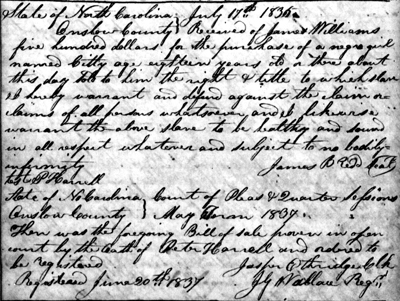 State of North Carolina July 17th 1836
Onslow County } Received of James Williams
five hundred dollars for the purchase of a negro girl
named Kitty age eighteen years old or there about
this day sold to him the right & title to which slave
I hereby warrant and defend against the claim or
claims of all persons whatsoever and I likewise
warrant the above slave to be healthy and sound
in all respect whatever and subject to no bodily
infirmity James B
test P Harrell
State of No Carolina } Court of Pleas & Quarter Sessions
Onslow County } May Term 1837
Then was the foregoing Bill of sale proven in open
court by the Oath of Peter Harrell and ordered to
be registered Jasper Etheridge Clk
Registered June 20th 1837 Wallace Regr